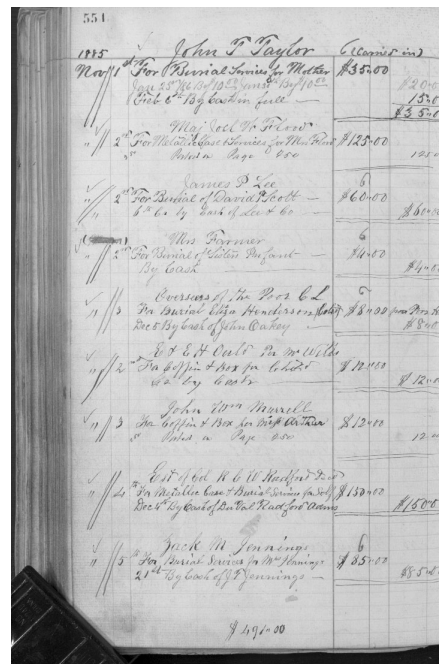 554
1885 John T Taylor (Carried in)
Nov 1st For Burial Services for Mother $35.00
$20.00
Feb 6th By Cash in full 15.00
$35.00
Maj Joel W Flood
" 2nd For Metalic Case & Services for Mrs Flood $125.00
" Posted on Page 250 125.0
James P Lee 6
" 2nd For Burial of David Scott $60.00
6th " by Cash of Lee & Co $60.00
Mrs Farmer 6
" 2nd For Burial of Sisters Infant $4.00
By Cash $4.00
Overseers of the Poor C L 6
" 3 For Burial Eliza Henderson $8.00
Dec 5 By Cash of John Oakey $8.00
E & E H Ould Per Mr Wills
" 2 For Coffin & Box for Child $12.00
by Cash $12.0
John Wm Murrell
" 3 For Coffin & Box for Miss Arthur $12.00
" Posted on Page 250 12.00
Est of Col R C W Radford Decd
" 4 For Metallic Case & Burial Services for Self $150.00
Dec 5th By Cash of Radford Admr $150.0
Zack M Jennings 6
" 5 For Burial Services for Mrs Jennings $85.00
21st By Cash of J T Jennings $85.0
$491.00